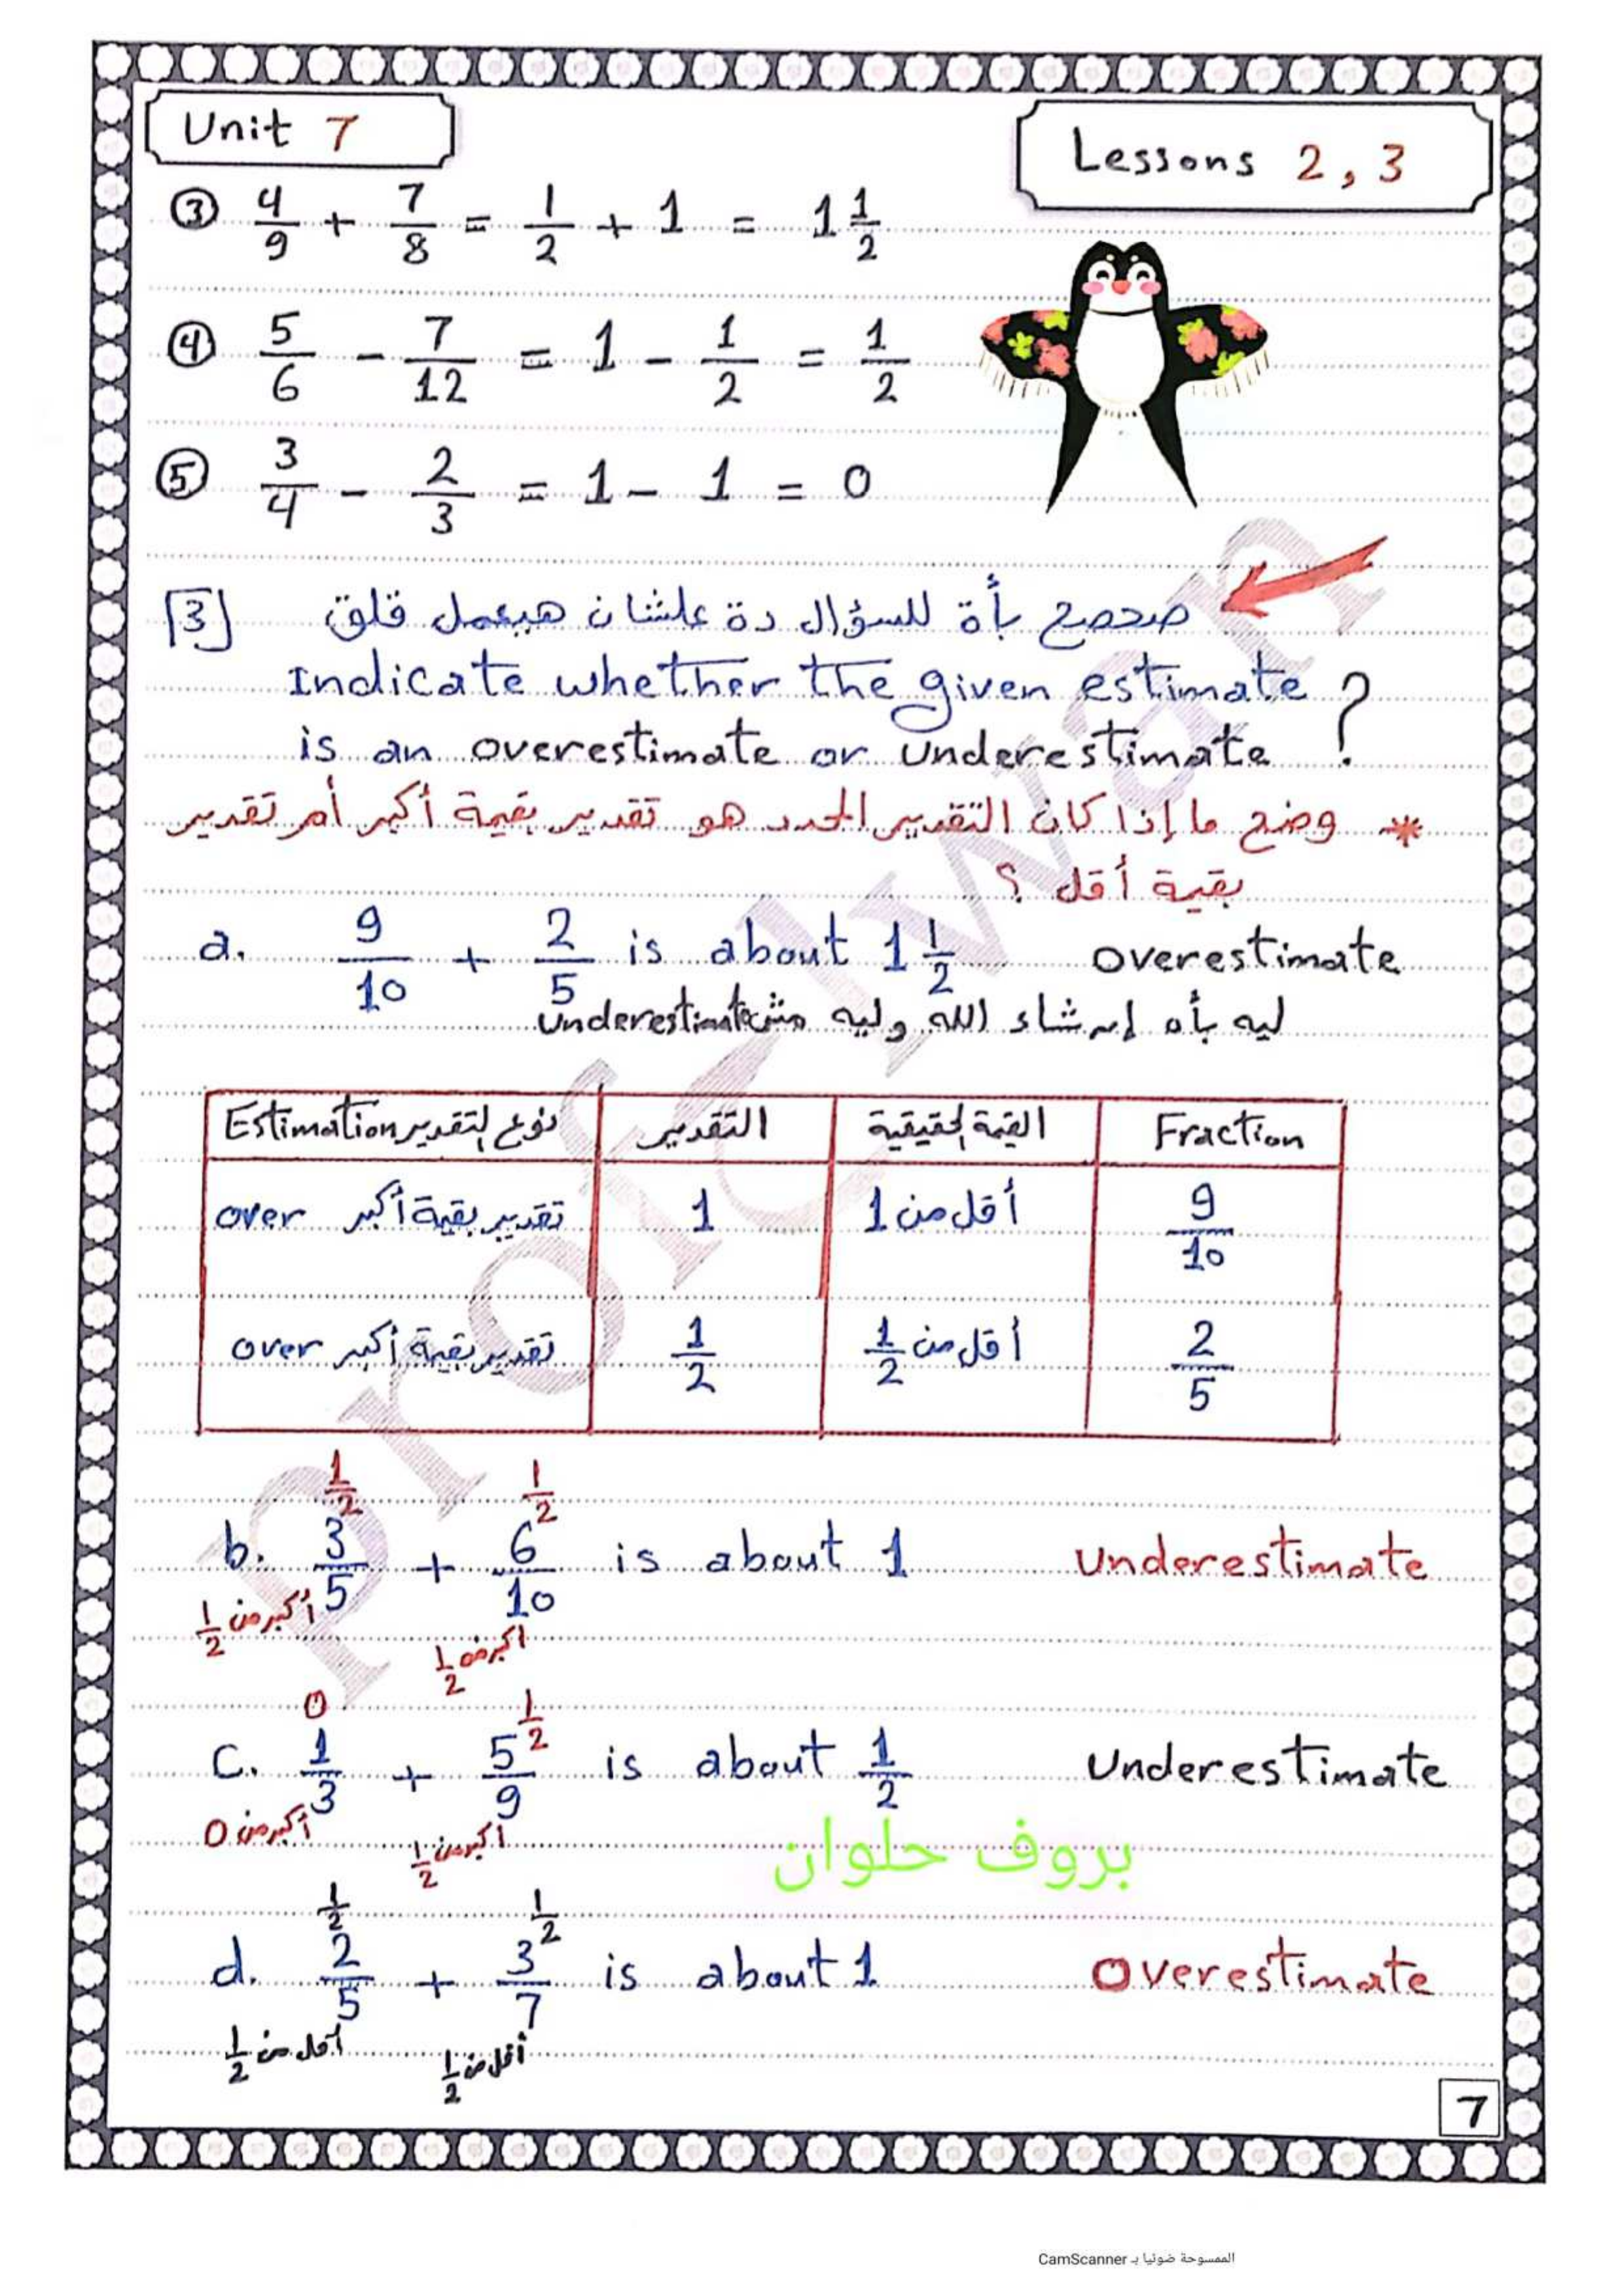 Unit 7
Lessons 2, 3
③ 4/9 + 7/8 = 1/2 + 1 = 1 1/2
④ 5/6 - 7/12 = 1 - 1/2 = 1/2
⑤ 3/4 - 2/3 = 1 - 1 = 0
[3] صحصح بأة للسؤال دة علشان هيعمل قلق
Indicate whether the given estimate
is an overestimate or underestimate ?
* وضح ما إذا كان التقدير المحدد هو تقدير بقيمة أكبر أم تقدير
بقيمة أقل ؟
a. 9/10 + 2/5 is about 1 1/2 overestimate
ليه بأه إن شاء الله وليه مش underestimate
Estimation نوع التقدير التقدير القيمة الحقيقية Fraction
over تقدير بقيمة أكبر 1 أقل من 1 9/10
over تقدير بقيمة أكبر 1/2 أقل من 1/2 2/5
1/2 1/2
b. 3/5 + 6/10 is about 1 Underestimate
أكبر من 1/2 أكبر من 1/2
0 1/2
c. 1/3 + 5/9 is about 1/2 Underestimate
أكبر من 0 أكبر من 1/2
بروف حلوان
1/2 1/2
d. 2/5 + 3/7 is about 1 Overestimate
أقل من 1/2 أقل من 1/2
7
prof Elwan
الممسوحة ضوئيا بـ CamScanner